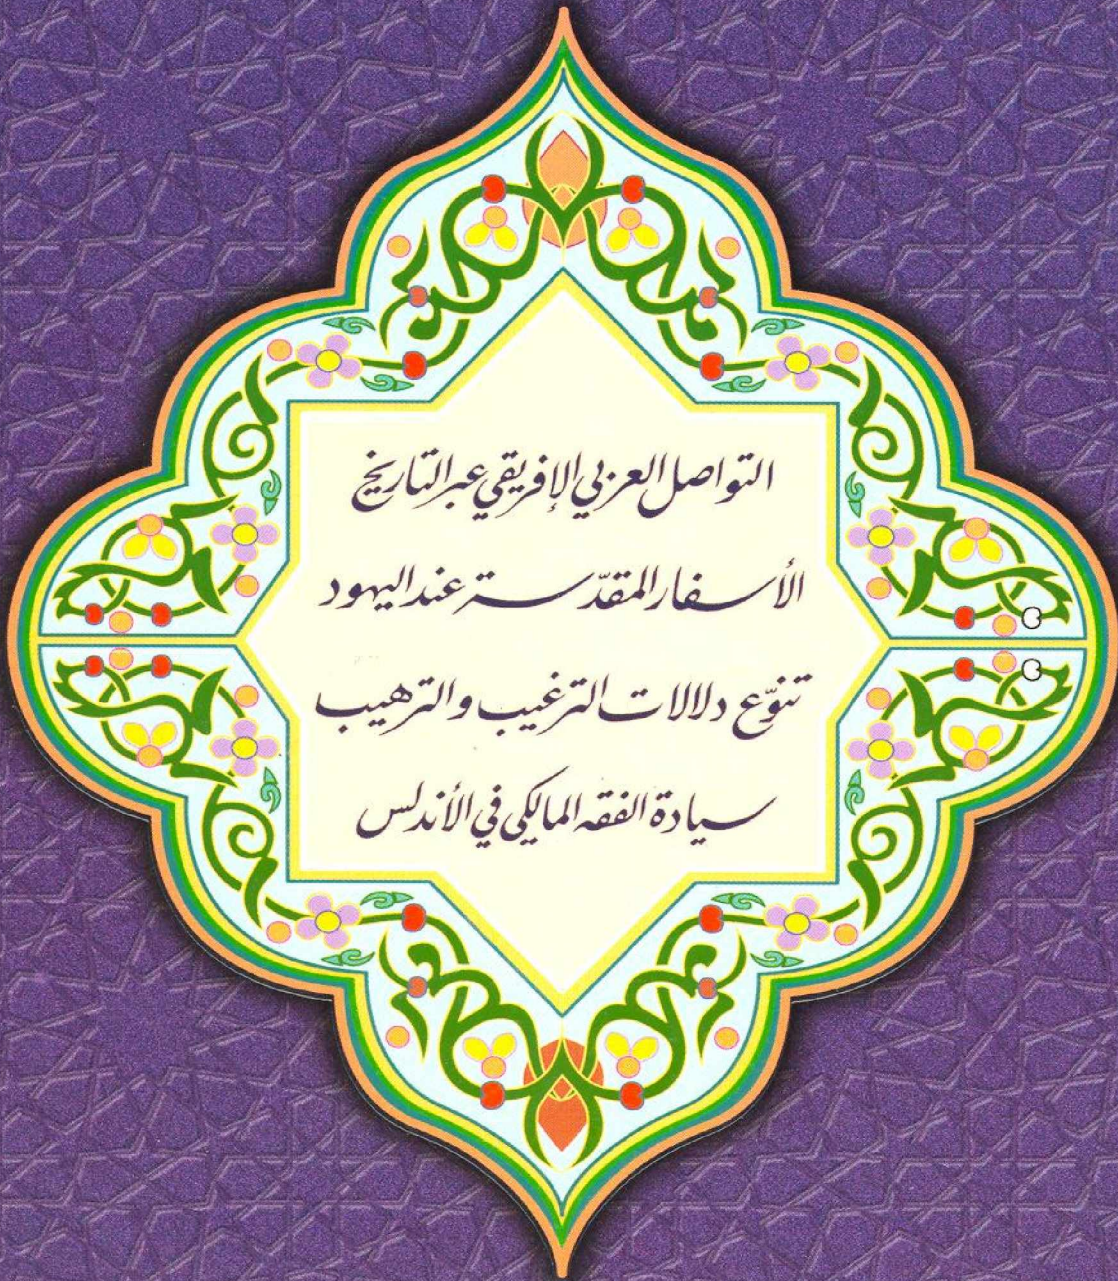 التواصل العربي الإفريقي عبر التاريخ
الأسفار المقدّسة عند اليهود
تنوّع دلالات الترغيب والترهيب
سيادة الفقه المالكي في الأندلس